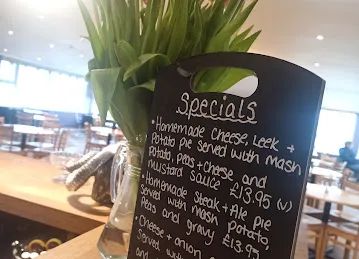 Specials
• Homemade Cheese, Leek +
Potato Pie served with mash
Potato, Peas + Cheese and
mustard sauce £13.95 (v)
• Homemade Steak + Ale Pie
Served with mash Potato,
Peas and gravy £13.95
• Cheese + onion
Served with
and